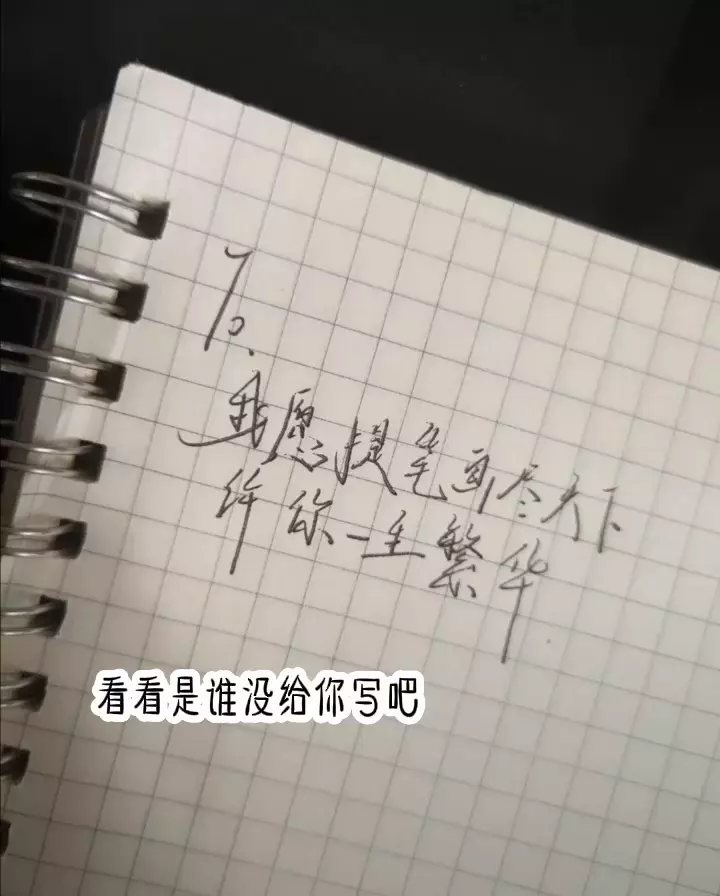 To.
我愿提笔画尽天下
许你一生繁华
看看是谁没给你写吧